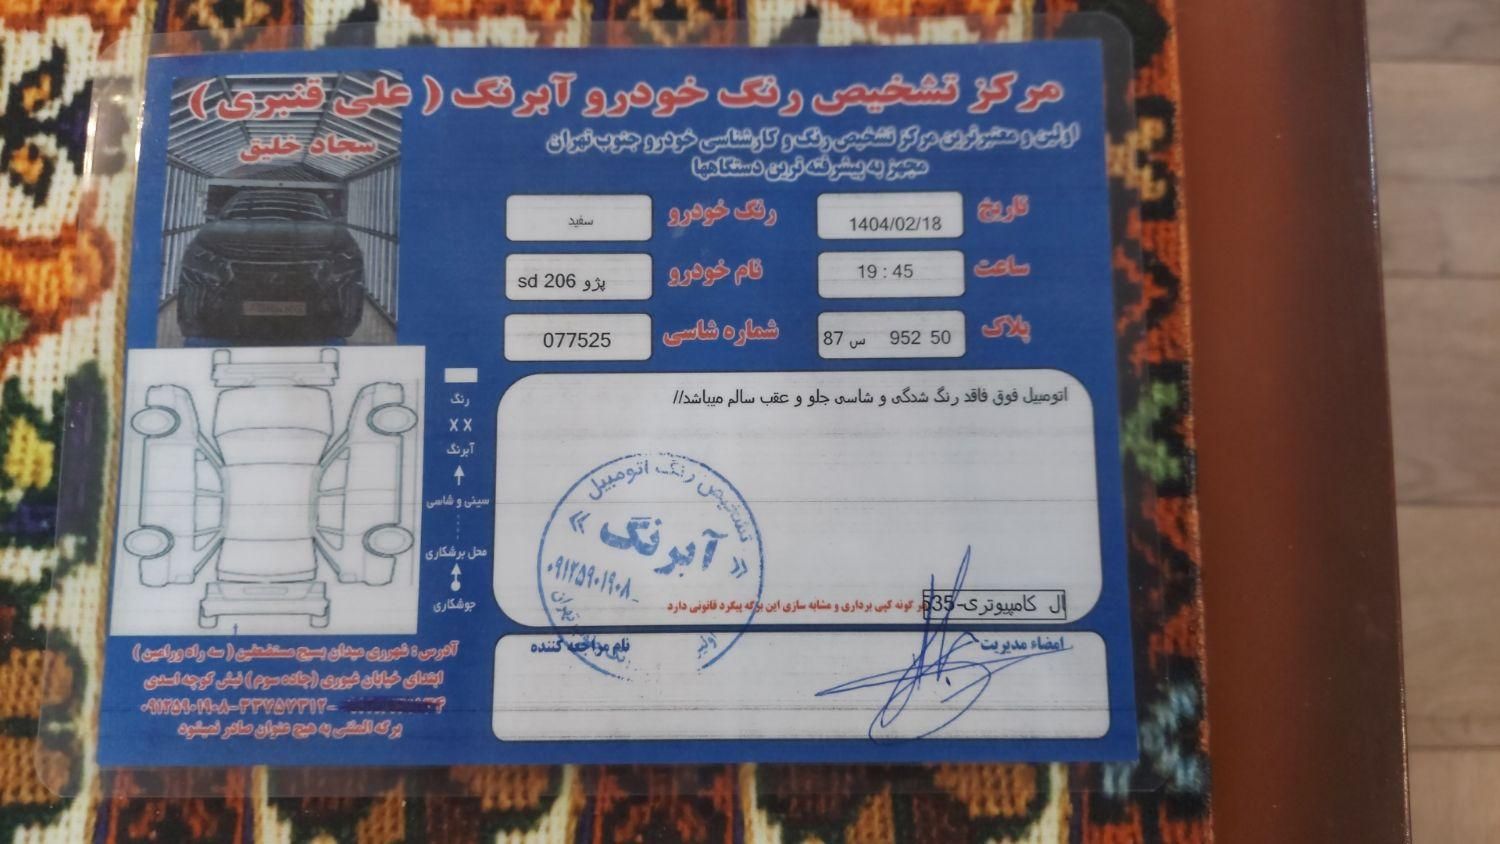 مرکز تشخیص رنگ خودرو آبرنگ ( علی قنبری )
سجاد خلیق
اولین و معتبرترین مرکز تشخیص رنگ و کارشناسی خودرو جنوب تهران
مجهز به پیشرفته ترین دستگاهها
تاریخ 1404/02/18 رنگ خودرو سفید
ساعت 19 : 45 نام خودرو پژو 206 sd
پلاک 87 س 952 50 شماره شاسی 077525
رنگ
X X
آبرنگ
سینی و شاسی
محل برشکاری
جوشکاری
اتومبیل فوق فاقد رنگ شدگی و شاسی جلو و عقب سالم میباشد//
تشخیص رنگ اتومبیل
« آبرنگ »
۰۹۱۲۵۹۰۱۹۰۸
تهران
گونه کپی برداری و مشابه سازی این برگه پیگرد قانونی دارد
ال کامپیوتری-535
امضاء مدیریت
نام مراجعه کننده
آدرس : شهرری میدان بسیج مستضعفین ( سه راه ورامین )
ابتدای خیابان غیوری (جاده سوم ) نبش کوچه اسدی
۰۹۱۲۵۹۰۱۹۰۸-۳۳۷۵۷۳۱۲-
برگه المثنی به هیچ عنوان صادر نمیشود